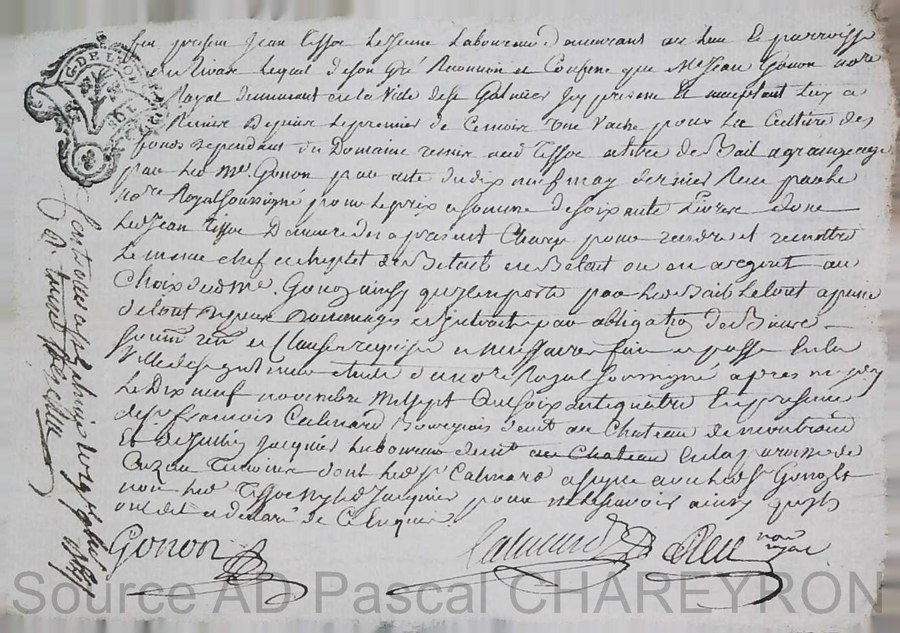 fut present Jean Tissot Le Jeune Laboureur demeurant au lieu et parroisse
de Rivas Lequel de son Gré Reconnoit et Confesse que Me Jean Gonon no.re
Royal demeurant en la Ville de St Galmier Icy present et acceptant luy a
Remis Depuis Le premier de Ce mois Une Vache pour La Culture des
fonds dependant du Domaine remis aud Tissot a titre de Bail a grangeage
par led Me Gonon par acte du dix neuf may dernier Reçu par le
no.re Royal soussigné pour le prix et somme de soixante Livres dont
Led Jean Tissot Demeure des a present Chargé pour rendre et remettre
Le meme chef et cheptel de Betail en Betail ou en argent au
Choix dud Me Gonon ainsy qu'est porté par led Bail Le tout a peine
de tout depens dommages et interets par obligation de Biens
soum. ren. et Clauses requises et necessaires fait et passé en la
Ville de St Galmier etude du no.re Royal soussigné apres midy
Le Dix neuf novembre Mil sept Cent soixante quatre En presence
de Sr francois Calmard Bourgeois demt au Chateau de montrond
Et de Jacquier Laboureur demt au Chateau en la parroisse de
Cuzieu Temoins dont led Sr Calmard a signé avec led Sr Gonon et
non led Tissot ny led Jacquier pour ne le scavoir ainsy qu'ils
ont dit et declaré de Ce Enquis
Gonon Calmard
not royal
G. DE LYON
Source AD Pascal CHAREYRON